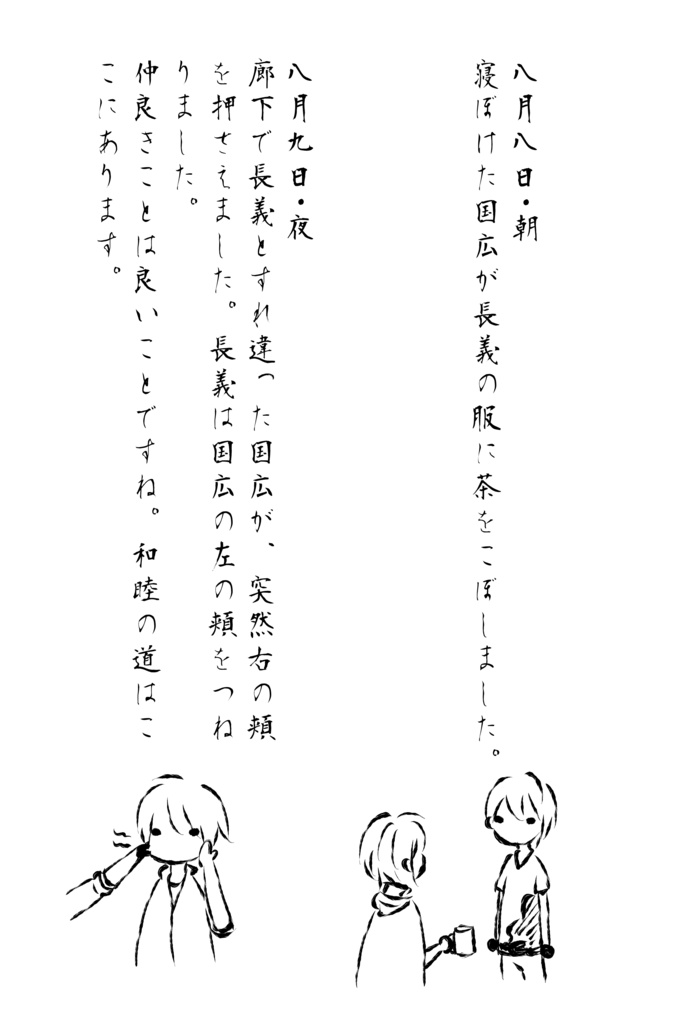 八月八日・朝
寝ぼけた国広が長義の服に茶をこぼしました。
八月九日・夜
廊下で長義とすれ違った国広が、突然右の頬
を押さえました。長義は国広の左の頬をつね
りました。
仲良きことは良いことですね。和睦の道はこ
こにあります。